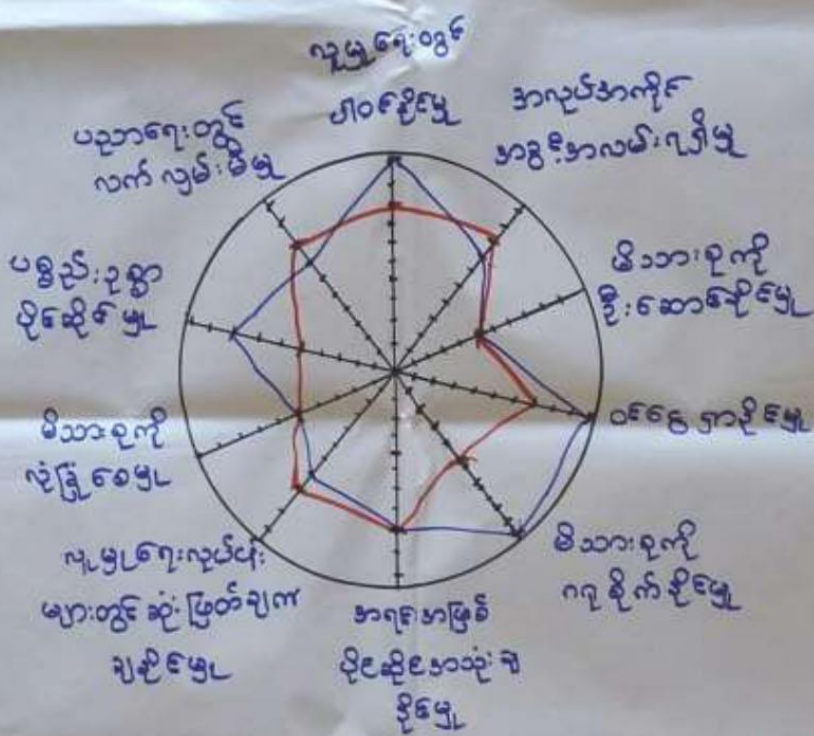 လူမှုရေးတွင်
ပါဝင်နိုင်မှု
အလုပ်အကိုင်
အခွင့်အလမ်းရရှိမှု
မိသားစုကို
ဦးဆောင်နိုင်မှု
ဝင်ငွေရှာနိုင်မှု
မိသားစုကို
ဂရုစိုက်နိုင်မှု
အရင်းအမြစ်
ပိုင်ဆိုင်အသုံးချ
နိုင်မှု
လူမှုရေးလုပ်ငန်း
များတွင်ဆုံးဖြတ်ချက်
ချနိုင်မှု
မိသားစုကို
လုံခြုံစေမှု
ပစ္စည်းဥစ္စာ
ပိုင်ဆိုင်မှု
ပညာရေးတွင်
လက်လှမ်းမီမှု